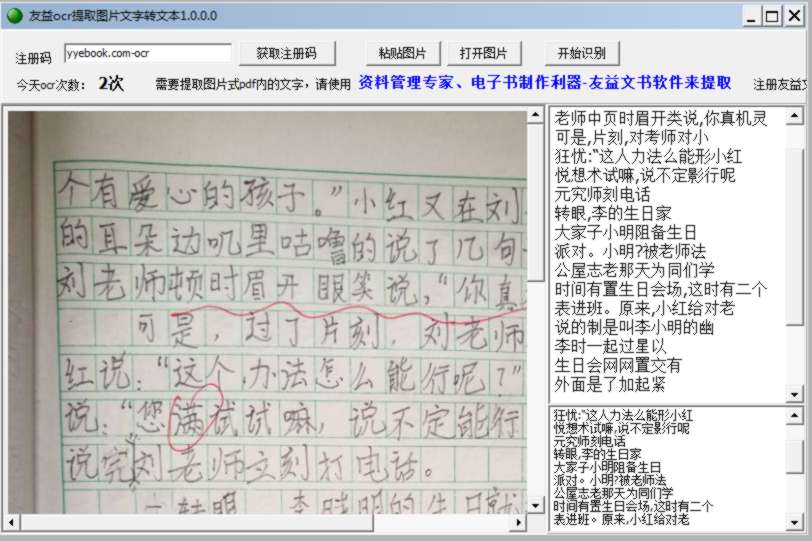 友益ocr提取图片文字转文本1.0.0.0
注册码 yyebook.com-ocr 获取注册码 粘贴图片 打开图片 开始识别
今天ocr次数： 2次 需要提取图片式pdf内的文字，请使用 资料管理专家、电子书制作利器-友益文书软件来提取 注册友益文
个有爱心的孩子。”小红又在刘
的耳朵边叽里咕噜的说了几句
刘老师顿时眉开眼笑说，“你真
可是，过了片刻，刘老师
红说：“这个办法怎么能行呢？”
说：“您满试试嘛，说不定能行
说完刘老师立刻打电话。
一转眼，李晓明的生日就
老师中页时眉开类说,你真机灵
可是,片刻,对考师对小
狂忧:“这人力法么能形小红
悦想术试嘛,说不定影行呢
元究师刻电话
转眼,李的生日家
大家子小明阻备生日
派对。小明?被老师法
公屋志老那天为同们学
时间有置生日会场,这时有二个
表进班。原来,小红给对老
说的制是叫李小明的幽
李时一起过星以
生日会网网置交有
外面是了加起紧
狂忧:“这人力法么能形小红
悦想术试嘛,说不定影行呢
元究师刻电话
转眼,李的生日家
大家子小明阻备生日
派对。小明?被老师法
公屋志老那天为同们学
时间有置生日会场,这时有二个
表进班。原来,小红给对老